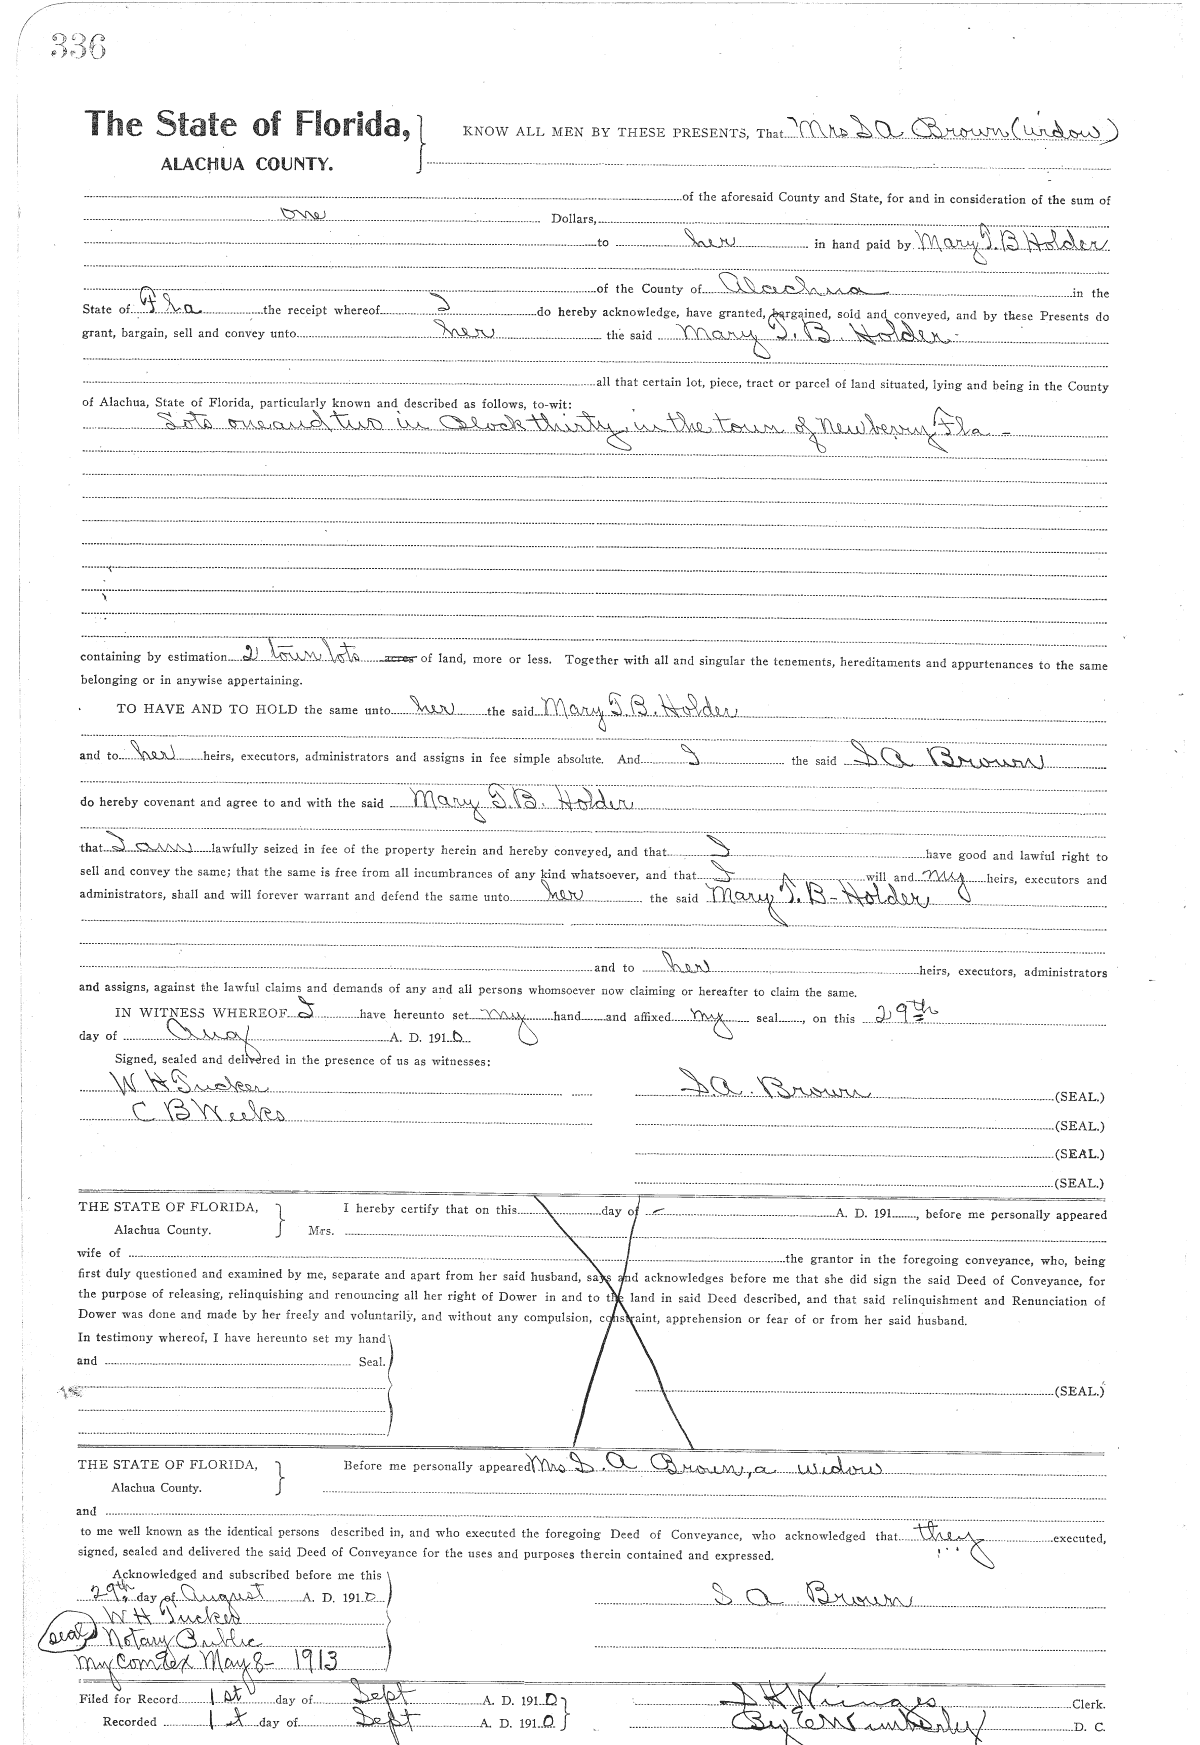 336
The State of Florida, KNOW ALL MEN BY THESE PRESENTS, That Mrs S A Brown (widow)
ALACHUA COUNTY.
of the aforesaid County and State, for and in consideration of the sum of
one Dollars,
to her in hand paid by Mary T. B Holder
of the County of Alachua in the
State of Fla the receipt whereof I do hereby acknowledge, have granted, bargained, sold and conveyed, and by these Presents do
grant, bargain, sell and convey unto her the said Mary T. B. Holder
all that certain lot, piece, tract or parcel of land situated, lying and being in the County
of Alachua, State of Florida, particularly known and described as follows, to-wit:
Lots one and two in Block thirty, in the town of Newberry Fla -
containing by estimation 2 town lots acres of land, more or less. Together with all and singular the tenements, hereditaments and appurtenances to the same
belonging or in anywise appertaining.
TO HAVE AND TO HOLD the same unto her the said Mary T. B. Holder
and to her heirs, executors, administrators and assigns in fee simple absolute. And I the said S A Brown
do hereby covenant and agree to and with the said Mary T. B. Holder
that I am lawfully seized in fee of the property herein and hereby conveyed, and that I have good and lawful right to
sell and convey the same; that the same is free from all incumbrances of any kind whatsoever, and that I will and my heirs, executors and
administrators, shall and will forever warrant and defend the same unto her the said Mary T. B- Holder
and to her heirs, executors, administrators
and assigns, against the lawful claims and demands of any and all persons whomsoever now claiming or hereafter to claim the same.
IN WITNESS WHEREOF I have hereunto set my hand and affixed my seal, on this 29th
day of Aug A. D. 1910.
Signed, sealed and delivered in the presence of us as witnesses:
W H Tucker S.A. Brown (SEAL.)
C B Weeks (SEAL.)
(SEAL.)
(SEAL.)
THE STATE OF FLORIDA, I hereby certify that on this day of A. D. 191, before me personally appeared
Alachua County. Mrs.
wife of the grantor in the foregoing conveyance, who, being
first duly questioned and examined by me, separate and apart from her said husband, says and acknowledges before me that she did sign the said Deed of Conveyance, for
the purpose of releasing, relinquishing and renouncing all her right of Dower in and to the land in said Deed described, and that said relinquishment and Renunciation of
Dower was done and made by her freely and voluntarily, and without any compulsion, constraint, apprehension or fear of or from her said husband.
In testimony whereof, I have hereunto set my hand
and Seal.
(SEAL.)
THE STATE OF FLORIDA, Before me personally appeared Mrs S. A Brown, a widow
Alachua County.
and
to me well known as the identical persons described in, and who executed the foregoing Deed of Conveyance, who acknowledged that they executed,
signed, sealed and delivered the said Deed of Conveyance for the uses and purposes therein contained and expressed.
Acknowledged and subscribed before me this
29th day of August A. D. 1910 S A Brown
W H Tucker
(seal) Notary Public
My Com Ex May 8- 1913
Filed for Record 1st day of Sept A. D. 1910 S H Wienges Clerk.
Recorded 1st day of Sept A. D. 1910 By E Wimberly D. C.